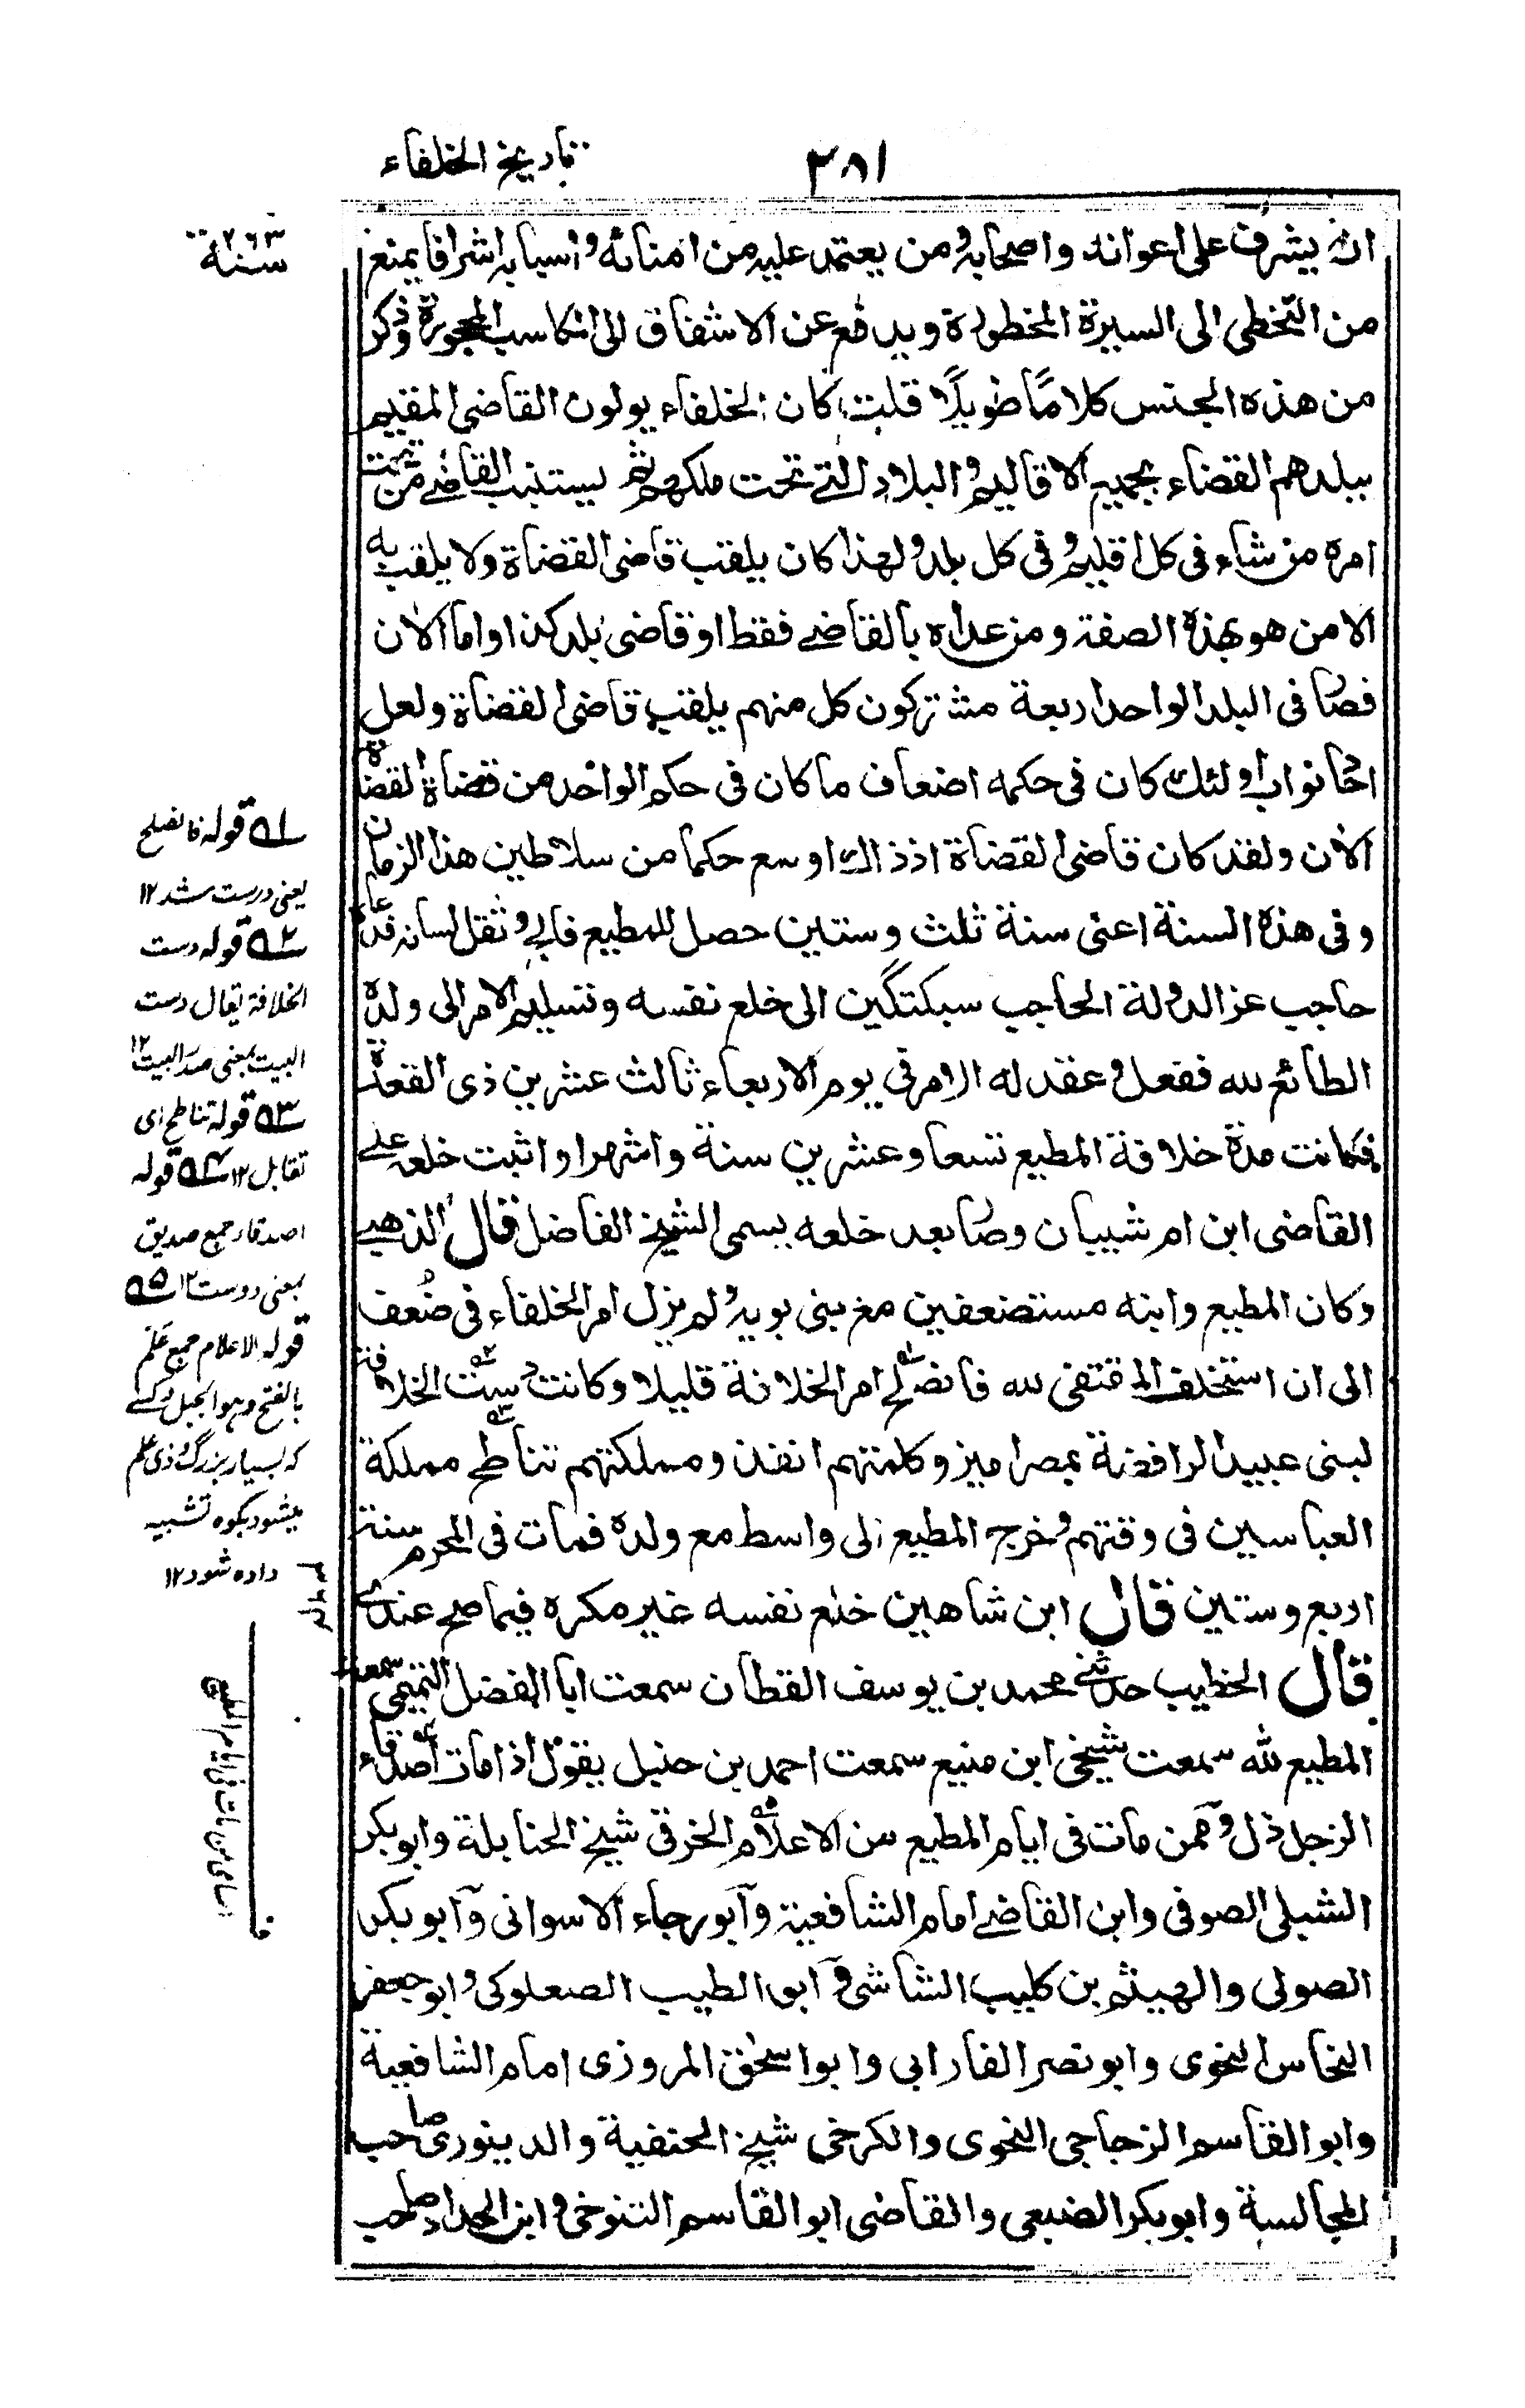 ٢٨١
تاريخ الخلفاء
سنة ٣٦٣
انه يشرف على اعوانه واصحابه ومن يعتمد عليه من امنائه واسبابه اشرافا يمنع
من التخطى الى السيرة المحظورة ويدفع عن الاشفاق الى المكاسب المحجورة وذكر
من هذه الجنس كلامًا طويلًا قلت كان الخلفاء يولون القاضى المقيم
ببلدهم القضاء بجميع الاقاليم والبلاد التى تحت ملكهم ثم يستنيب القاضى من تحت
امره من شاء فى كل اقليم وفى كل بلد ولهذا كان يلقب قاضى القضاة ولا يلقب به
الا من هو بهذه الصفة ومن عداه بالقاضى فقط او قاضى بلد كذا واما الاٰن
فصار فى البلد الواحد اربعة مشتركون كل منهم يلقب قاضى القضاة ولعل
احاد نواب اولئك كان فى حكمه اضعاف ما كان فى حكم الواحد من قضاة القضاة
الاٰن ولقد كان قاضى القضاة اذ ذاك اوسع حكما من سلاطين هذا الزمان
وفى هذه السنة اعنى سنة ثلث وستين حصل للمطيع فالج وثقل لسانه فدعاه
حاجب عز الدولة الحاجب سبكتگين الى خلع نفسه وتسليم الامر الى ولده
الطائع لله ففعل وعقد له الامر فى يوم الاربعاء ثالث عشرين ذى القعدة
فكانت مدة خلافة المطيع تسعا وعشرين سنة واشهرا واثبت خلعه على
القاضى ابن ام شيبان وصار بعد خلعه يسمى الشيخ الفاضل قال الذهبى
وكان المطيع وابنه مستضعفين مع بنى بويه ولم يزل امر الخلفاء فى ضُعف
الى ان استخلف المقتفى لله فانصلح امر الخلافة قليلا وكانت دست الخلافة
لبنى عبيد الرافضة بمصر اميز وكلمتهم انفذ ومملكتهم تناطح مملكة
العباسين فى وقتهم وخرج المطيع الى واسط مع ولده فمات فى المحرم سنة
اربع وستين قال ابن شاهين خلع نفسه غير مكره فيما صح عندى
قال الخطيب حدثنى محمد بن يوسف القطان سمعت ابا الفضل التميمى سمعت
المطيع لله سمعت شيخى ابن منيع سمعت احمد بن حنبل يقول اذا مات اصدقاء
الرجل ذل وممن مات فى ايام المطيع من الاعلام الخرقى شيخ الحنابلة وابو بكر
الشبلى الصوفى وابن القاضى امام الشافعية وابو رجاء الاسوانى وابو بكر
الصولى والهيثم بن كليب الشاشى و ابو الطيب الصعلوكى وابو جعفر
النحاس النحوى وابو نصر الفارابى وابو اسحٰق المروزى امام الشافعية
وابو القاسم الزجاجى النحوى والكرخى شيخ الحنفية والدينورى صاحب
المجالسة وابو بكر الضبعى والقاضى ابو القاسم التنوخى وابن الحداد صاحب
٥١ قوله فانصلح
يعنى درست شد ١٢
٥٢ قوله دست
الخلافة يقال دست
البيت بمعنى صدر البيت ١٢
٥٣ قوله تناطح اى
تقابل ١٢ ٥٤ قوله
اصدقاء جمع صديق
بمعنى دوست ١٢ ٥٥
قوله الاعلام جمع عَلَم
بالفتح وهو الجبل وكسے
كه بسيار بزرگ وذى علم
ميشود بكوه تشبيه
داده شود ١٢
٣٦٤